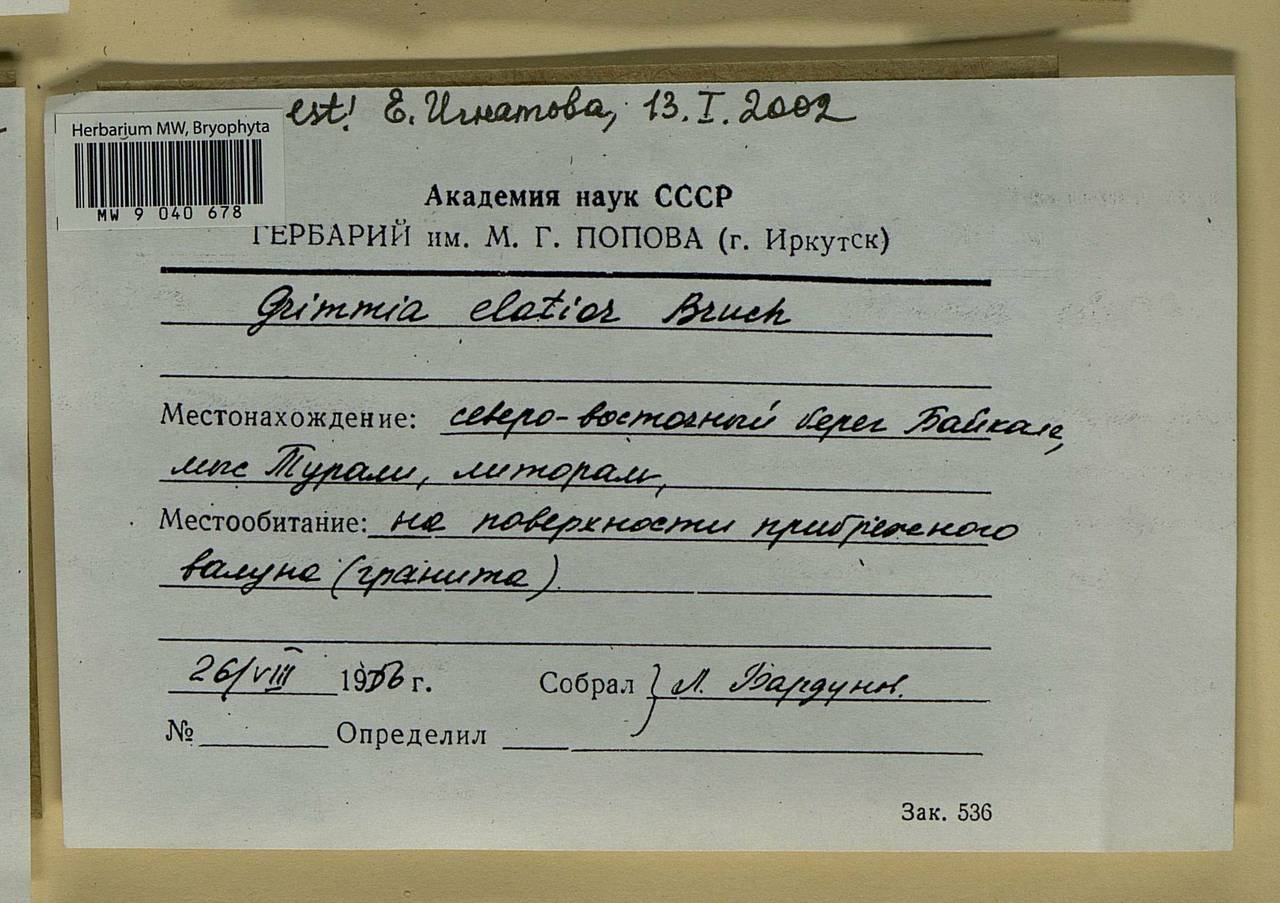 est! Е. Игнатова, 13. I. 2002
Herbarium MW, Bryophyta
MW 9 040 678
Академия наук СССР
ГЕРБАРИЙ им. М. Г. ПОПОВА (г. Иркутск)
Grimmia elatior Bruch
Местонахождение: северо-восточный берег Байкала,
мыс Турали, литораль,
Местообитание: на поверхности прибрежного
валуна (гранита).
26/VIII 1956 г. Собрал } Л. Бардунов.
№ Определил
Зак. 536